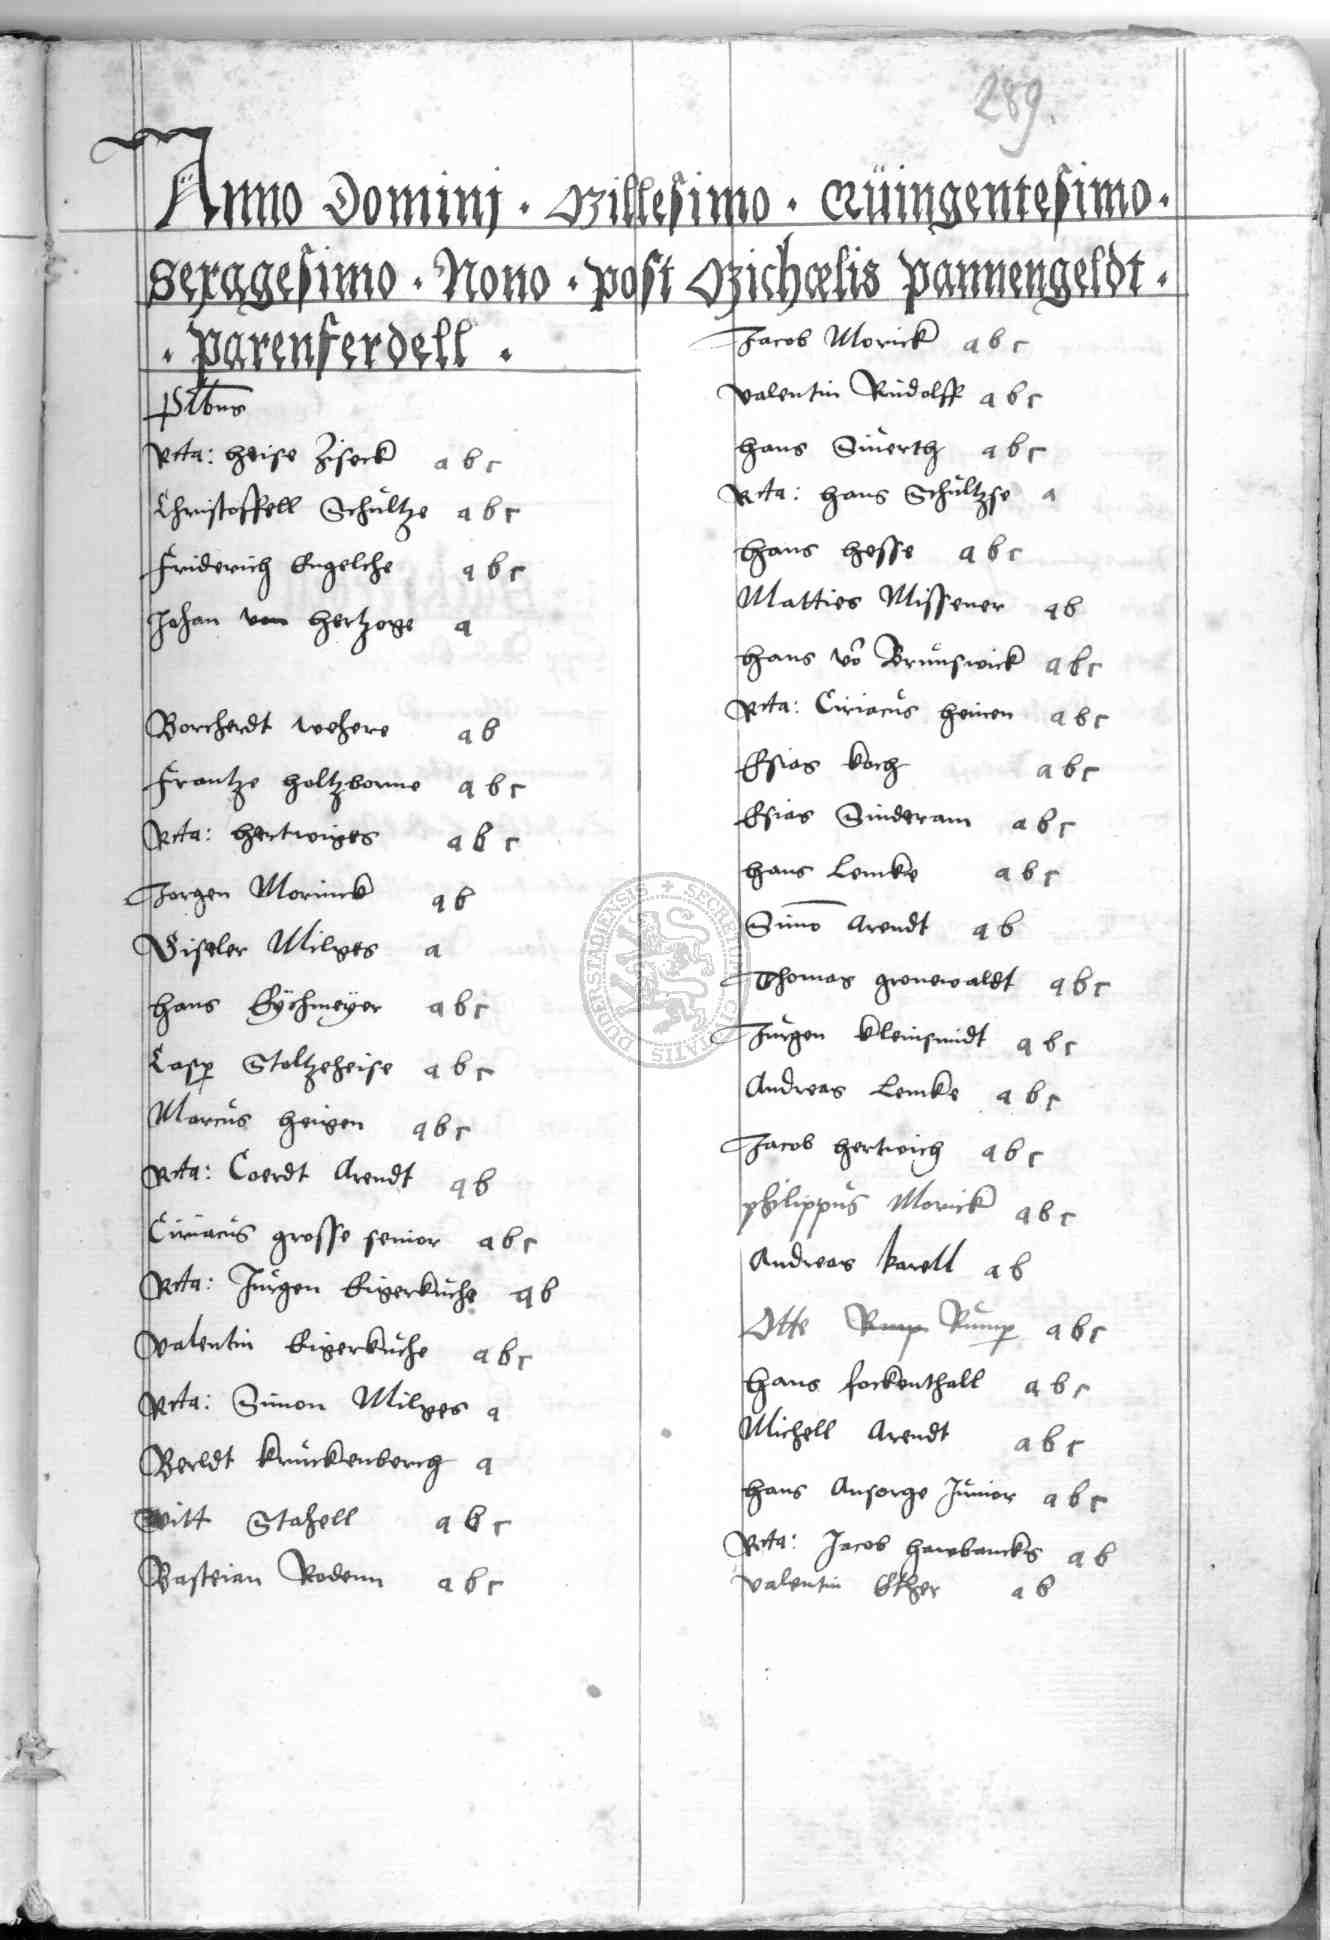 289.
Anno Domini · Millesimo · Quingentesimo ·
Sexagesimo · Nono · post Michaelis pannengeldt ·
· parenferdell ·
plbns
Rcta: Heise Ziseck a b c
Christoffell Schultze a b c
Friderich Engelche a b c
Johan von Hertzoge a
Borcherdt Wehere a b
Frantze Holtzborne a b c
Rcta: Hertwiges a b c
Jorgen Morinck a b
Giseler Milges a
Hans Eÿchmeÿer a b c
Casp Stoltzeheise a b c
Marcus Heigen a b c
Rcta: Coerdt Arendt a b
Ciriacus grosse senior a b c
Rcta: Jurgen Eigerkuche a b
Valentin Eigerkuche a b c
Rcta: Simon Milges a
Berldt Kruckenberg a
Witt Stahell a b c
Basteian Rodenn a b c
Jacob Morick a b c
Valentin Rudolff a b c
Hans Siuerth a b c
Rcta: Hans Schultzse a
Hans Hesse a b c
Matties Missener a b
Hans vo Brunswick a b c
Rcta: Ciriacus Heinen a b c
Esias Koch a b c
Esias Sinderam a b c
Hans Lemke a b c
Simo Arendt a b
Thomas gronewaldt a b c
Jurgen Kleinsmidt a b c
Andreas Lemke a b c
Jacob Hertwich a b c
Philippus Morick a b c
Andreas Karell a b
Otte Rump Rump a b c
Hans Fockenthall a b c
Michell Arendt a b c
Hans Ansorge Junior a b c
Rcta: Jacob Hawbancks a b
Valentin Ether a b
DUDERSTADIENSIS + SECRETUM CIVITATIS